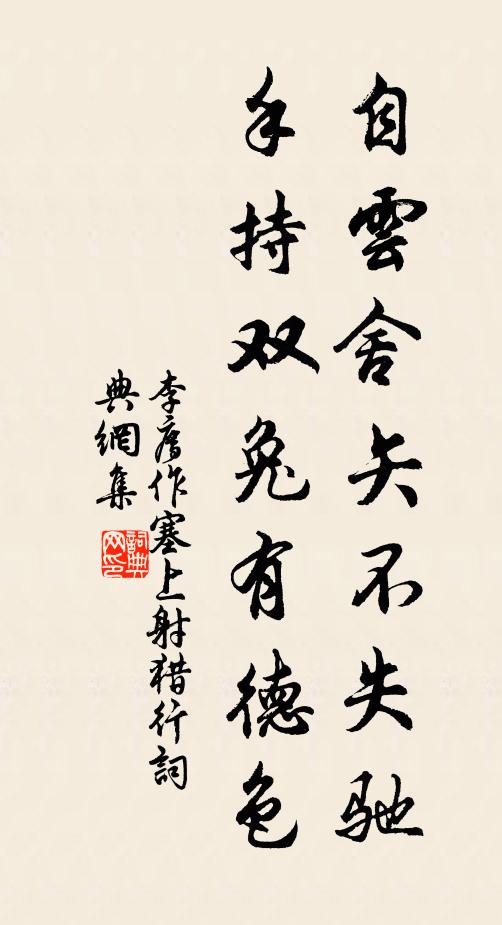 自雲舍矢不失馳
手持双兔有德色
李廌作塞上射猎行詞
典網集
詞典网印